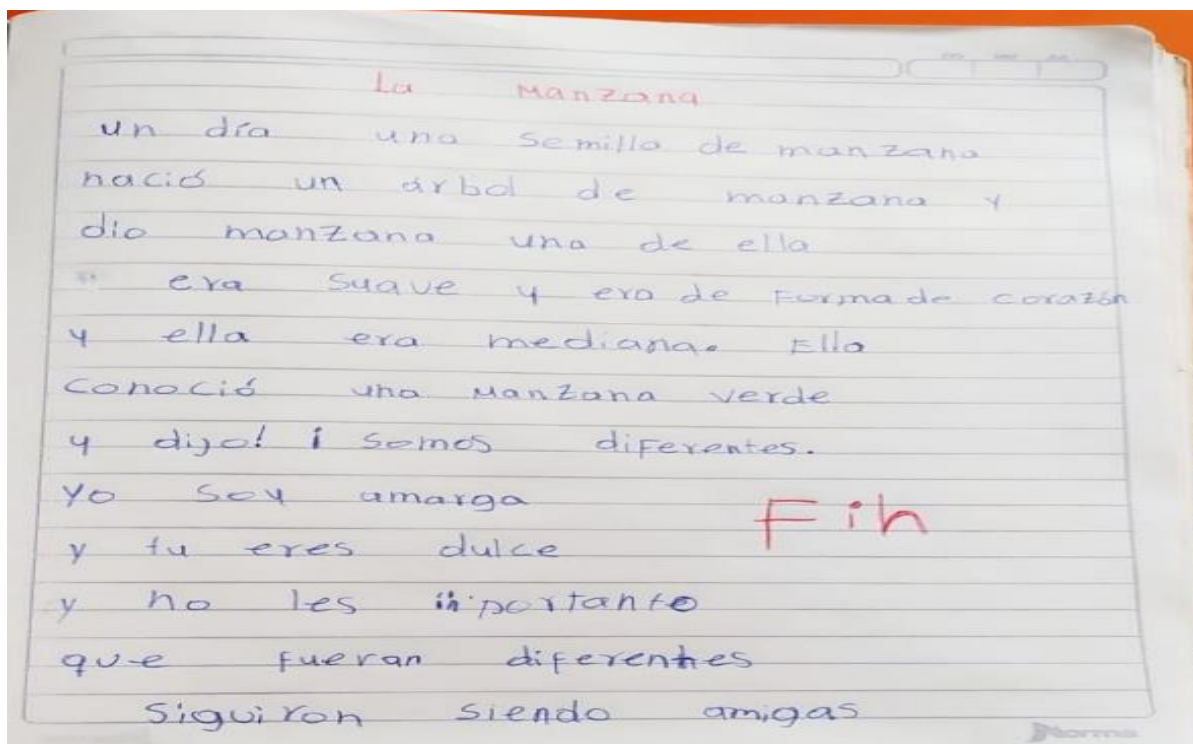 La Manzana
un día una semilla de manzana
nació un árbol de manzana y
dio manzana una de ella
era suave y era de Forma de corazón
y ella era mediana. Ella
conoció una Manzana verde
y dijo! ¡ somos diferentes.
yo soy amarga
Fin
y tu eres dulce
y no les inportanto
que fueran diferentes
siguiron siendo amigas
Norma